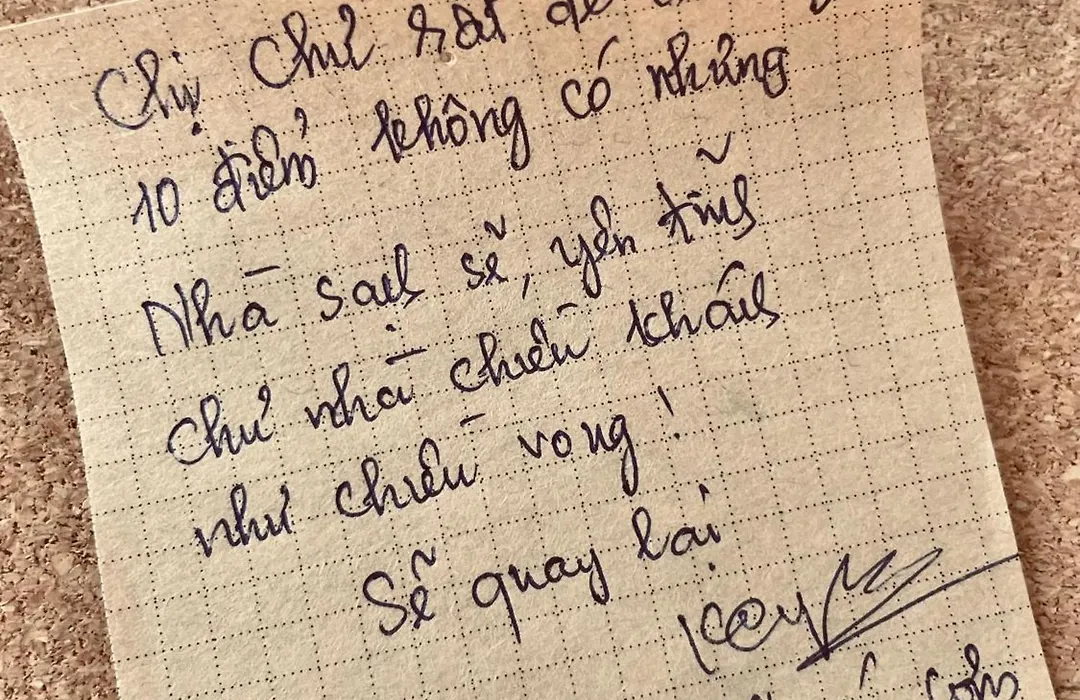 Chị Chủ rất dễ
10 điểm không có nhưng
Nhà sạch sẽ, yên tĩnh
chủ nhà chiều khách
như chiều vong!
Sẽ quay lại
Kay